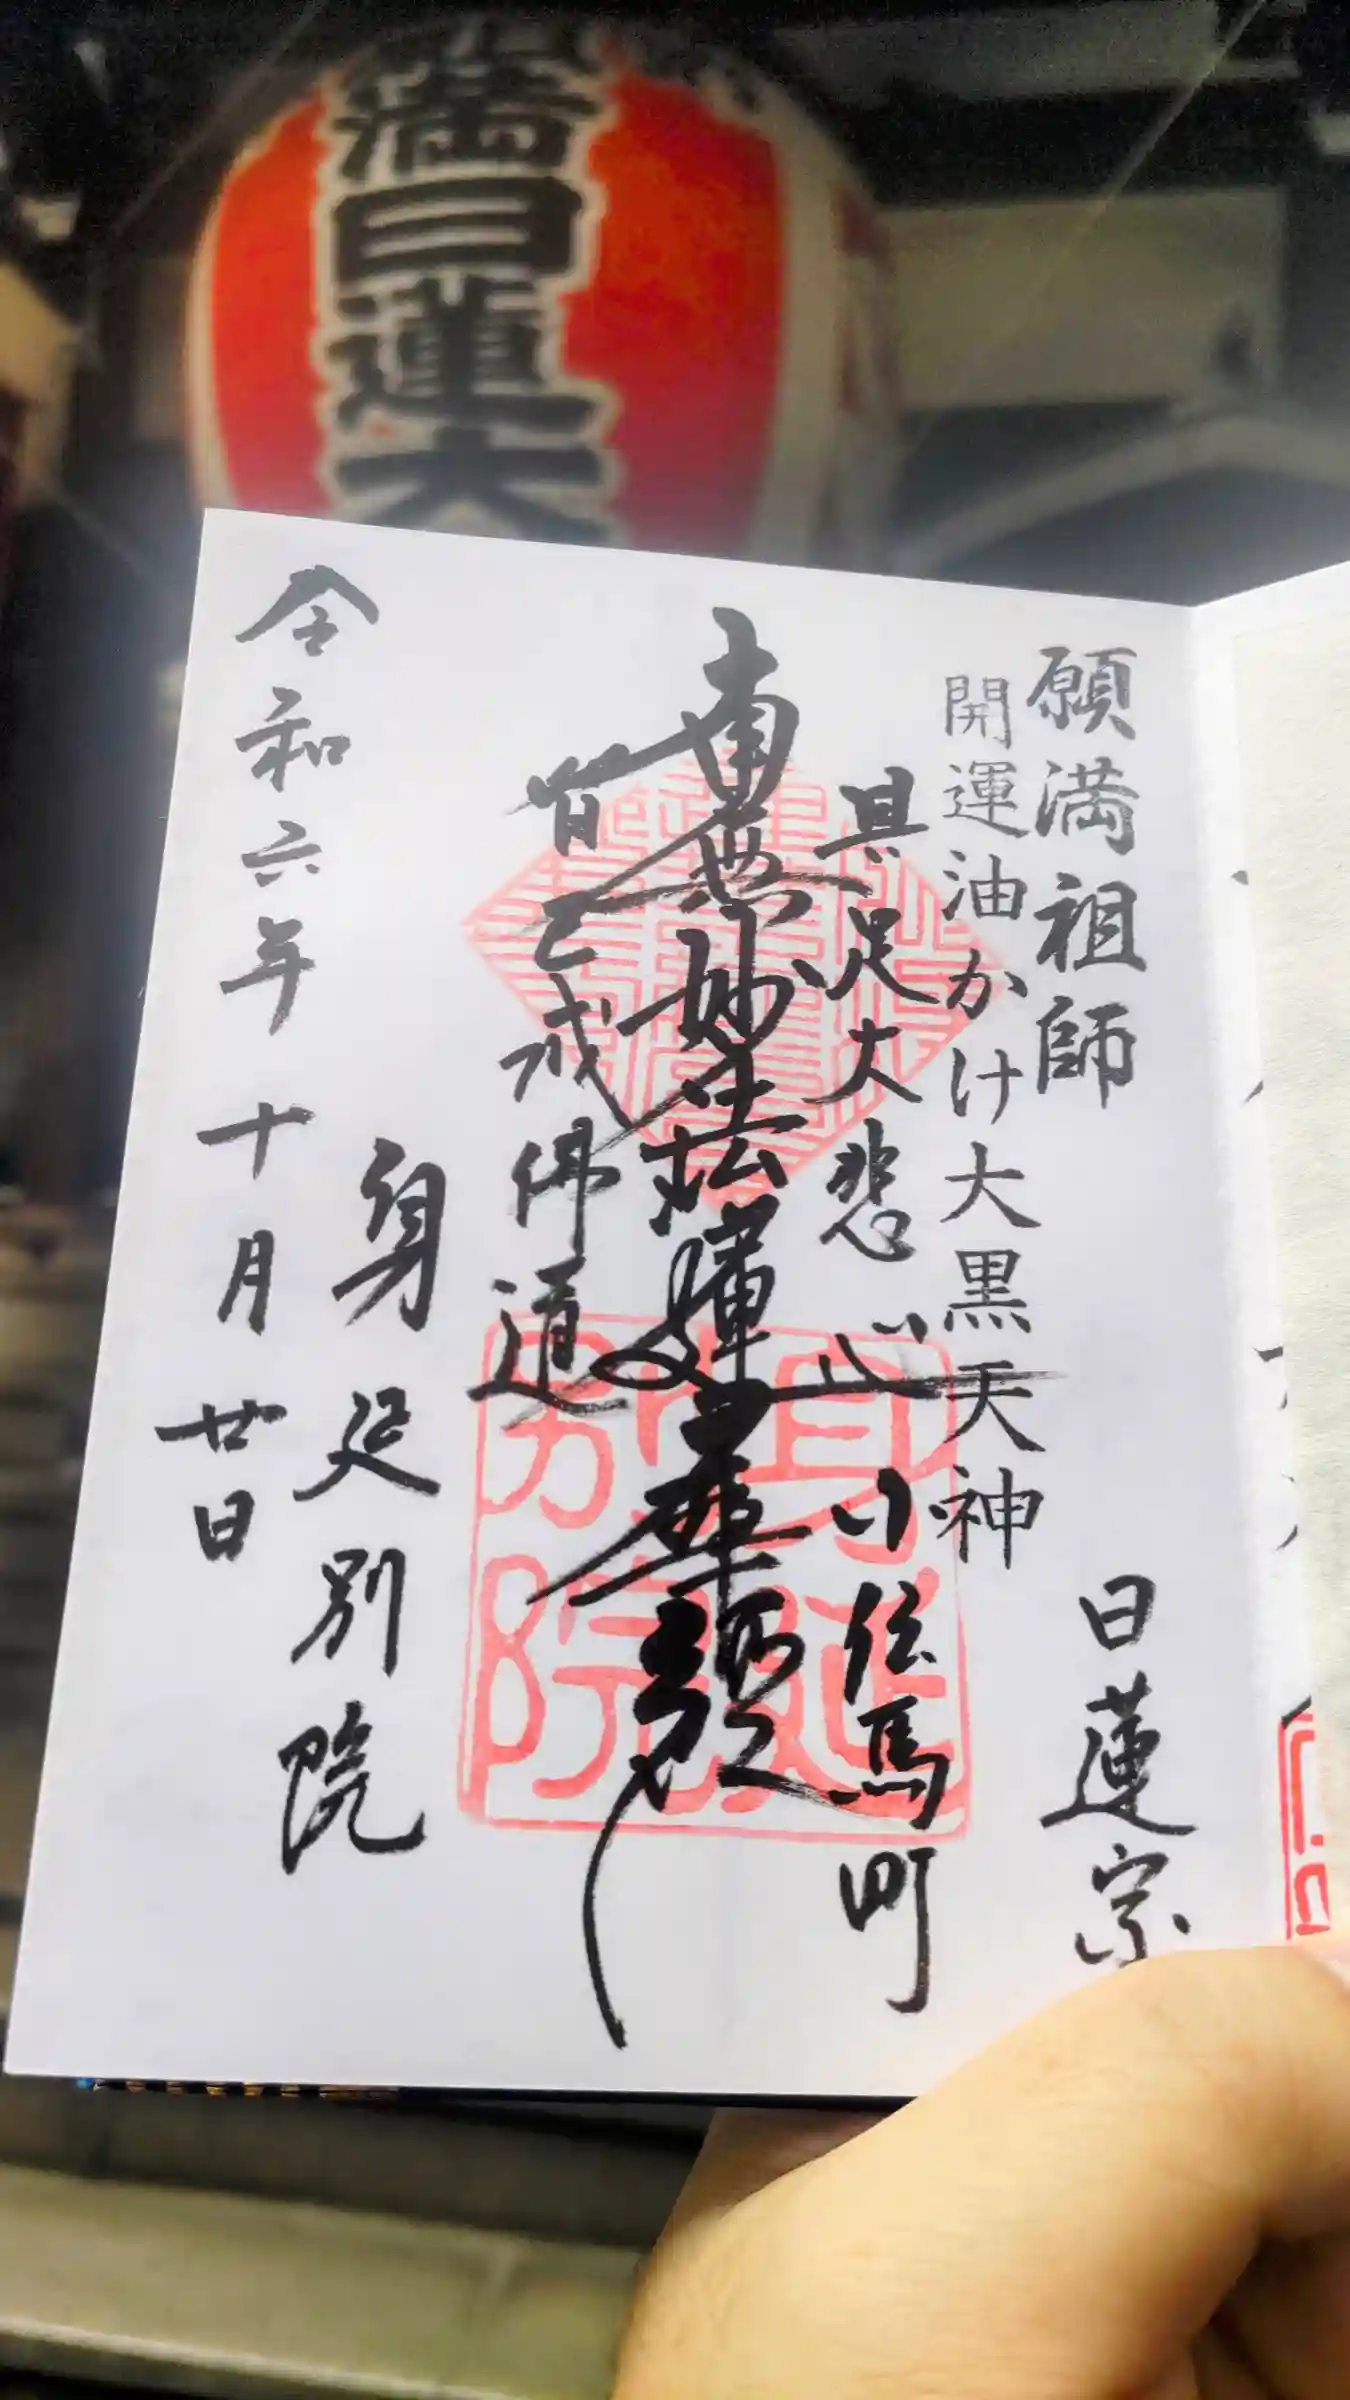 満日蓮大
願満祖師
日蓮宗
開運油かけ大黒天神
具足大悲心
小伝馬町
南無妙法蓮華経
皆已成佛道
身延別院
令和六年十月廿日
身延別院